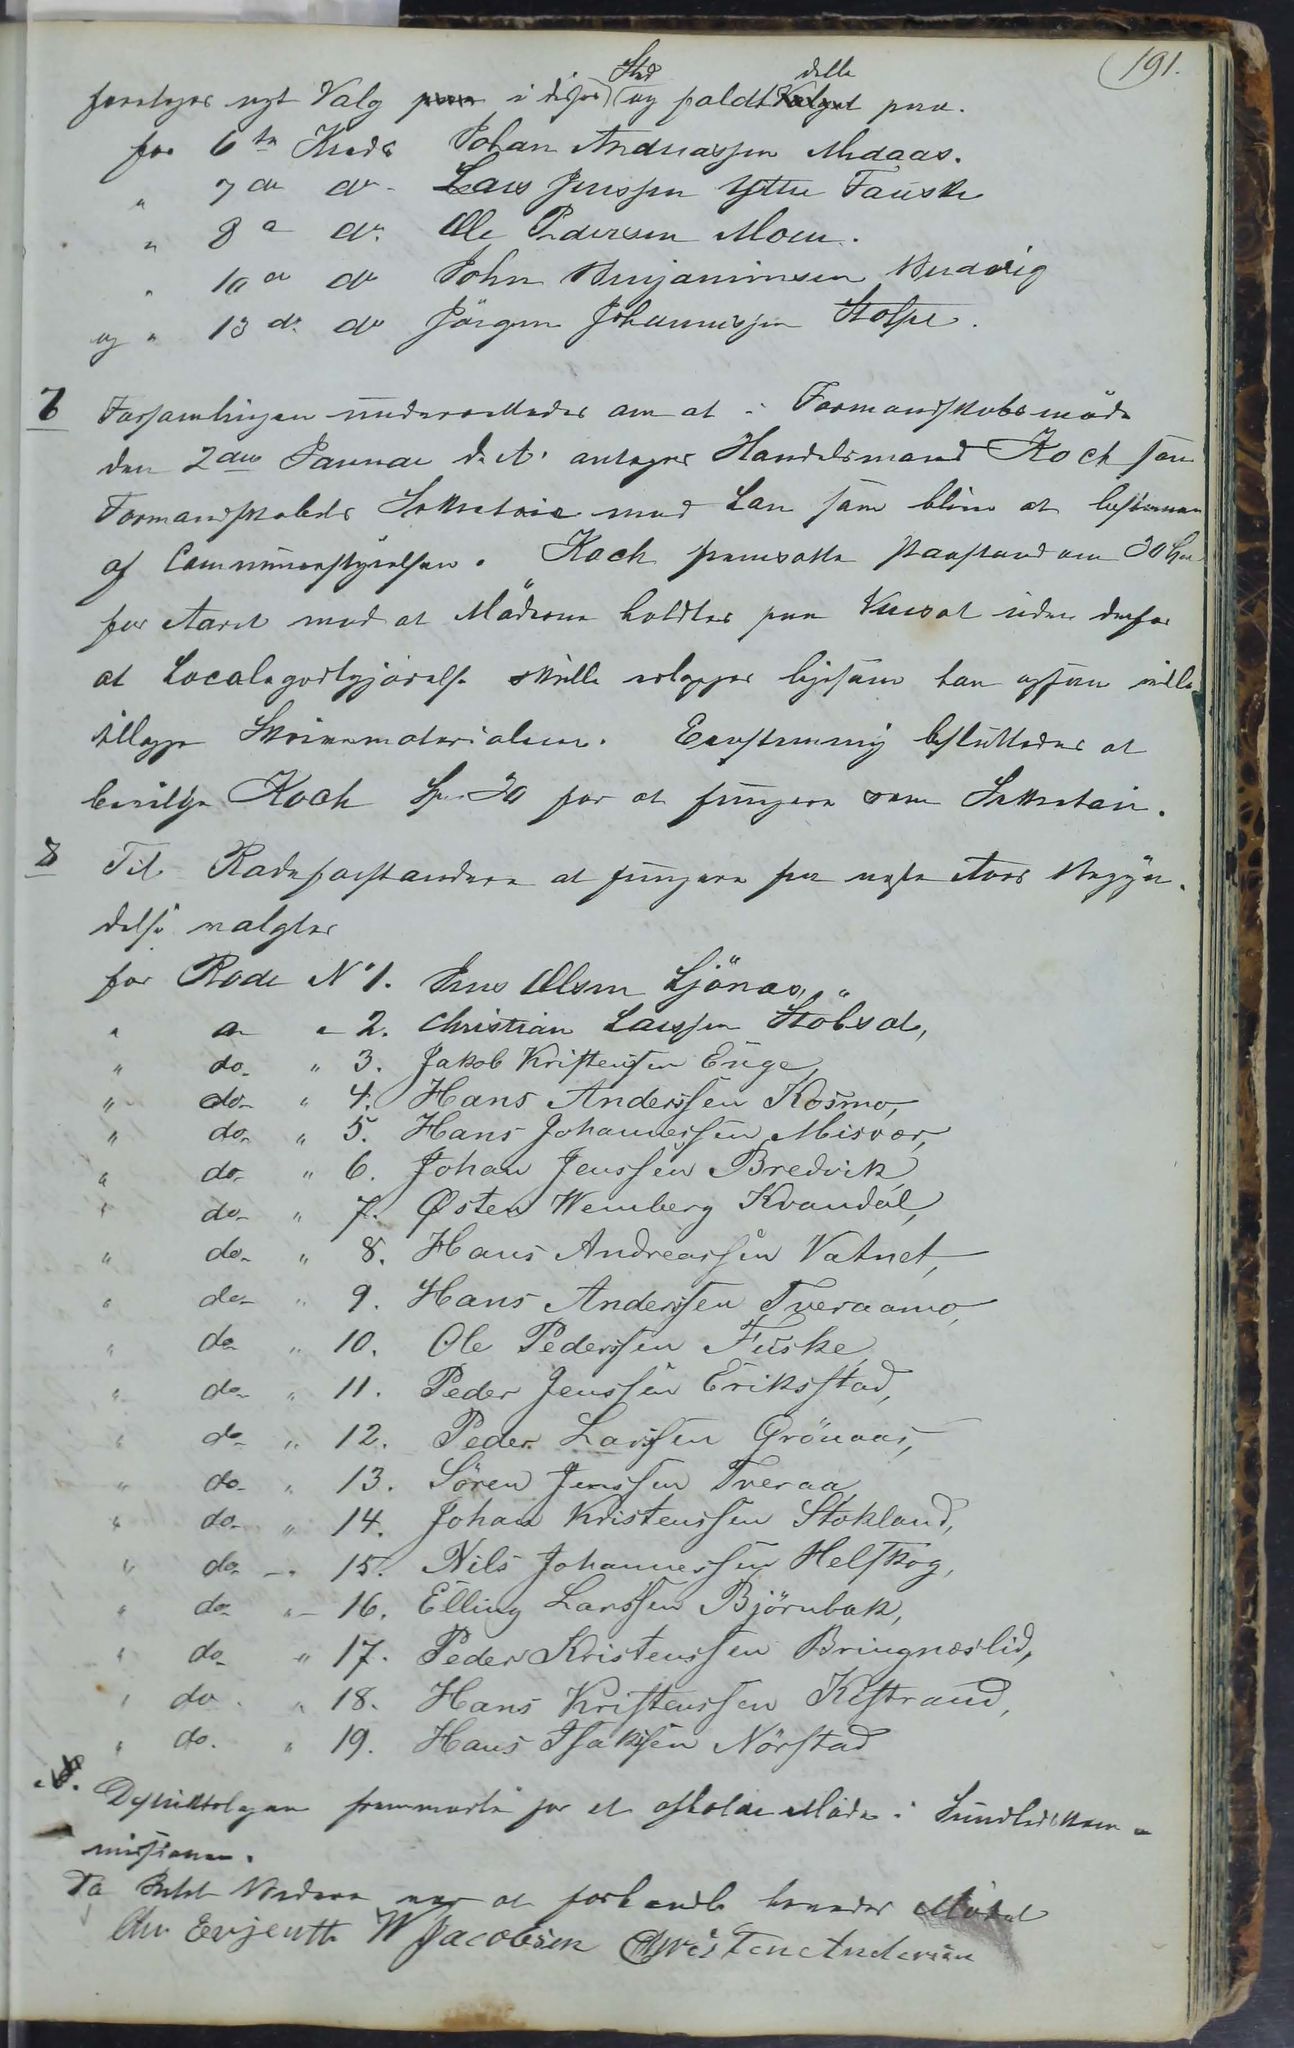 191.
foretoges nyt Valg i disses Sted og faldt dette paa.
for 6te Kreds Johan Andreassen Medaas.
" 7de do Lars Jenssen Yttre Fauske
" 8de do Ole Pedersen Moen.
" 10de do John Benjaminsen Budvig
og " 13de do Jørgen Johannessen Stolpe.
7 Forsamlingen underrettedes om at i Formandskabsmøde
den 2den Januar d. A. antoges Handelsmand Koch som
Formandskabets Sekretair mod Løn som bliver at bestemme
af Communestyrelsen. Koch fremsatte Paastand om 30 Spd
for Aaret mod at Møderne holdtes paa uden derfor
at Localegodtgjørelse skulde erlægges ligesom han ogsaa vilde
tillægge Skrivematerialier. Eenstemmig besluttedes at
bevilge Koch Spd 30 for at fungere som Sekretair.
8 Til Rodeforstandere at fungere fra næste Aars Begyn-
delse valgtes
for Rode No 1. Jens Olsen Ljönes,
" do " 2. Christian Larssen Stöbsat,
" do " 3. Jakob Kristensen Enge,
" do " 4. Hans Anderssen Kosmo,
" do " 5. Hans Johannessen Misvær,
" do " 6. Johan Jenssen Bredvik,
" do " 7. Østen Wemberg Kvandal,
" do " 8. Hans Andreassen Vatnet,
" do " 9. Hans Anderssen Tveraamo,
" do " 10. Ole Pederssen Fuske,
" do " 11. Peder Jenssen Eriksstad,
" do " 12. Peder Larssen Grönaas,
" do " 13. Sören Jenssen Tveraa,
" do " 14. Johan Kristenssen Stokland,
" do " 15. Nils Johannessen Helskog,
" do " 16. Elling Larssen Björnbak,
" do " 17. Peder Kristenssen Bringnæslid,
" do " 18. Hans Kristenssen Kistrand,
" do " 19. Hans Isakssen Nörstad
Distriktslægen fremmødte for at afholde Møde i Sundhedskom-
missionen.
Da Intet Videre var at forhandle hævedes Mødet
Chr Evjenth W Jacobsen Christen Andersen